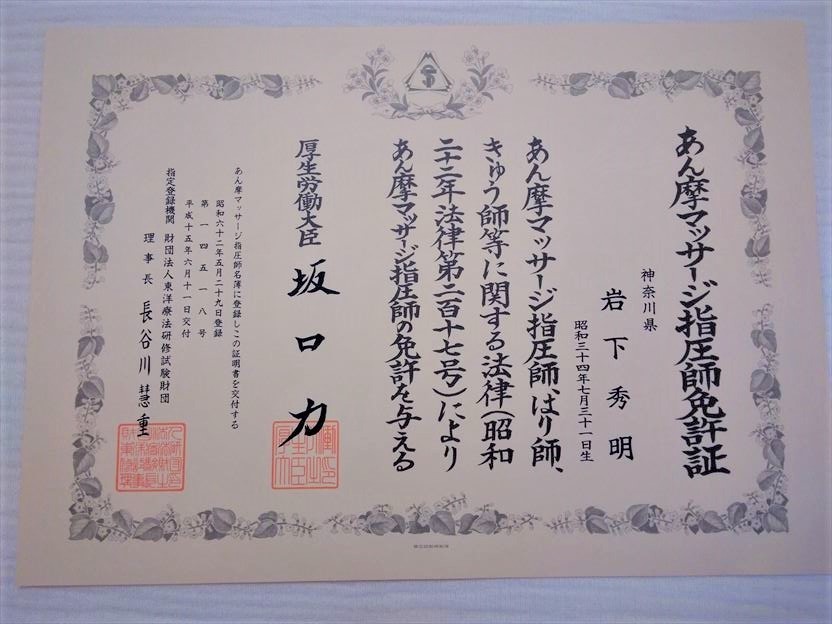 あん摩マッサージ指圧師免許証
神奈川県
岩下秀明
昭和三十四年七月三十一日生
あん摩マッサージ指圧師、はり師、
きゅう師等に関する法律(昭和
二十二年法律第二百十七号)により
あん摩マッサージ指圧師の免許を与える
厚生労働大臣 坂口力
あん摩マッサージ指圧師名簿に登録しこの証明書を交付する
昭和六十二年五月二十九日登録
第一四五一八号
平成十五年六月十一日交付
指定登録機関 財団法人東洋療法研修試験財団
理事長 長谷川慧重